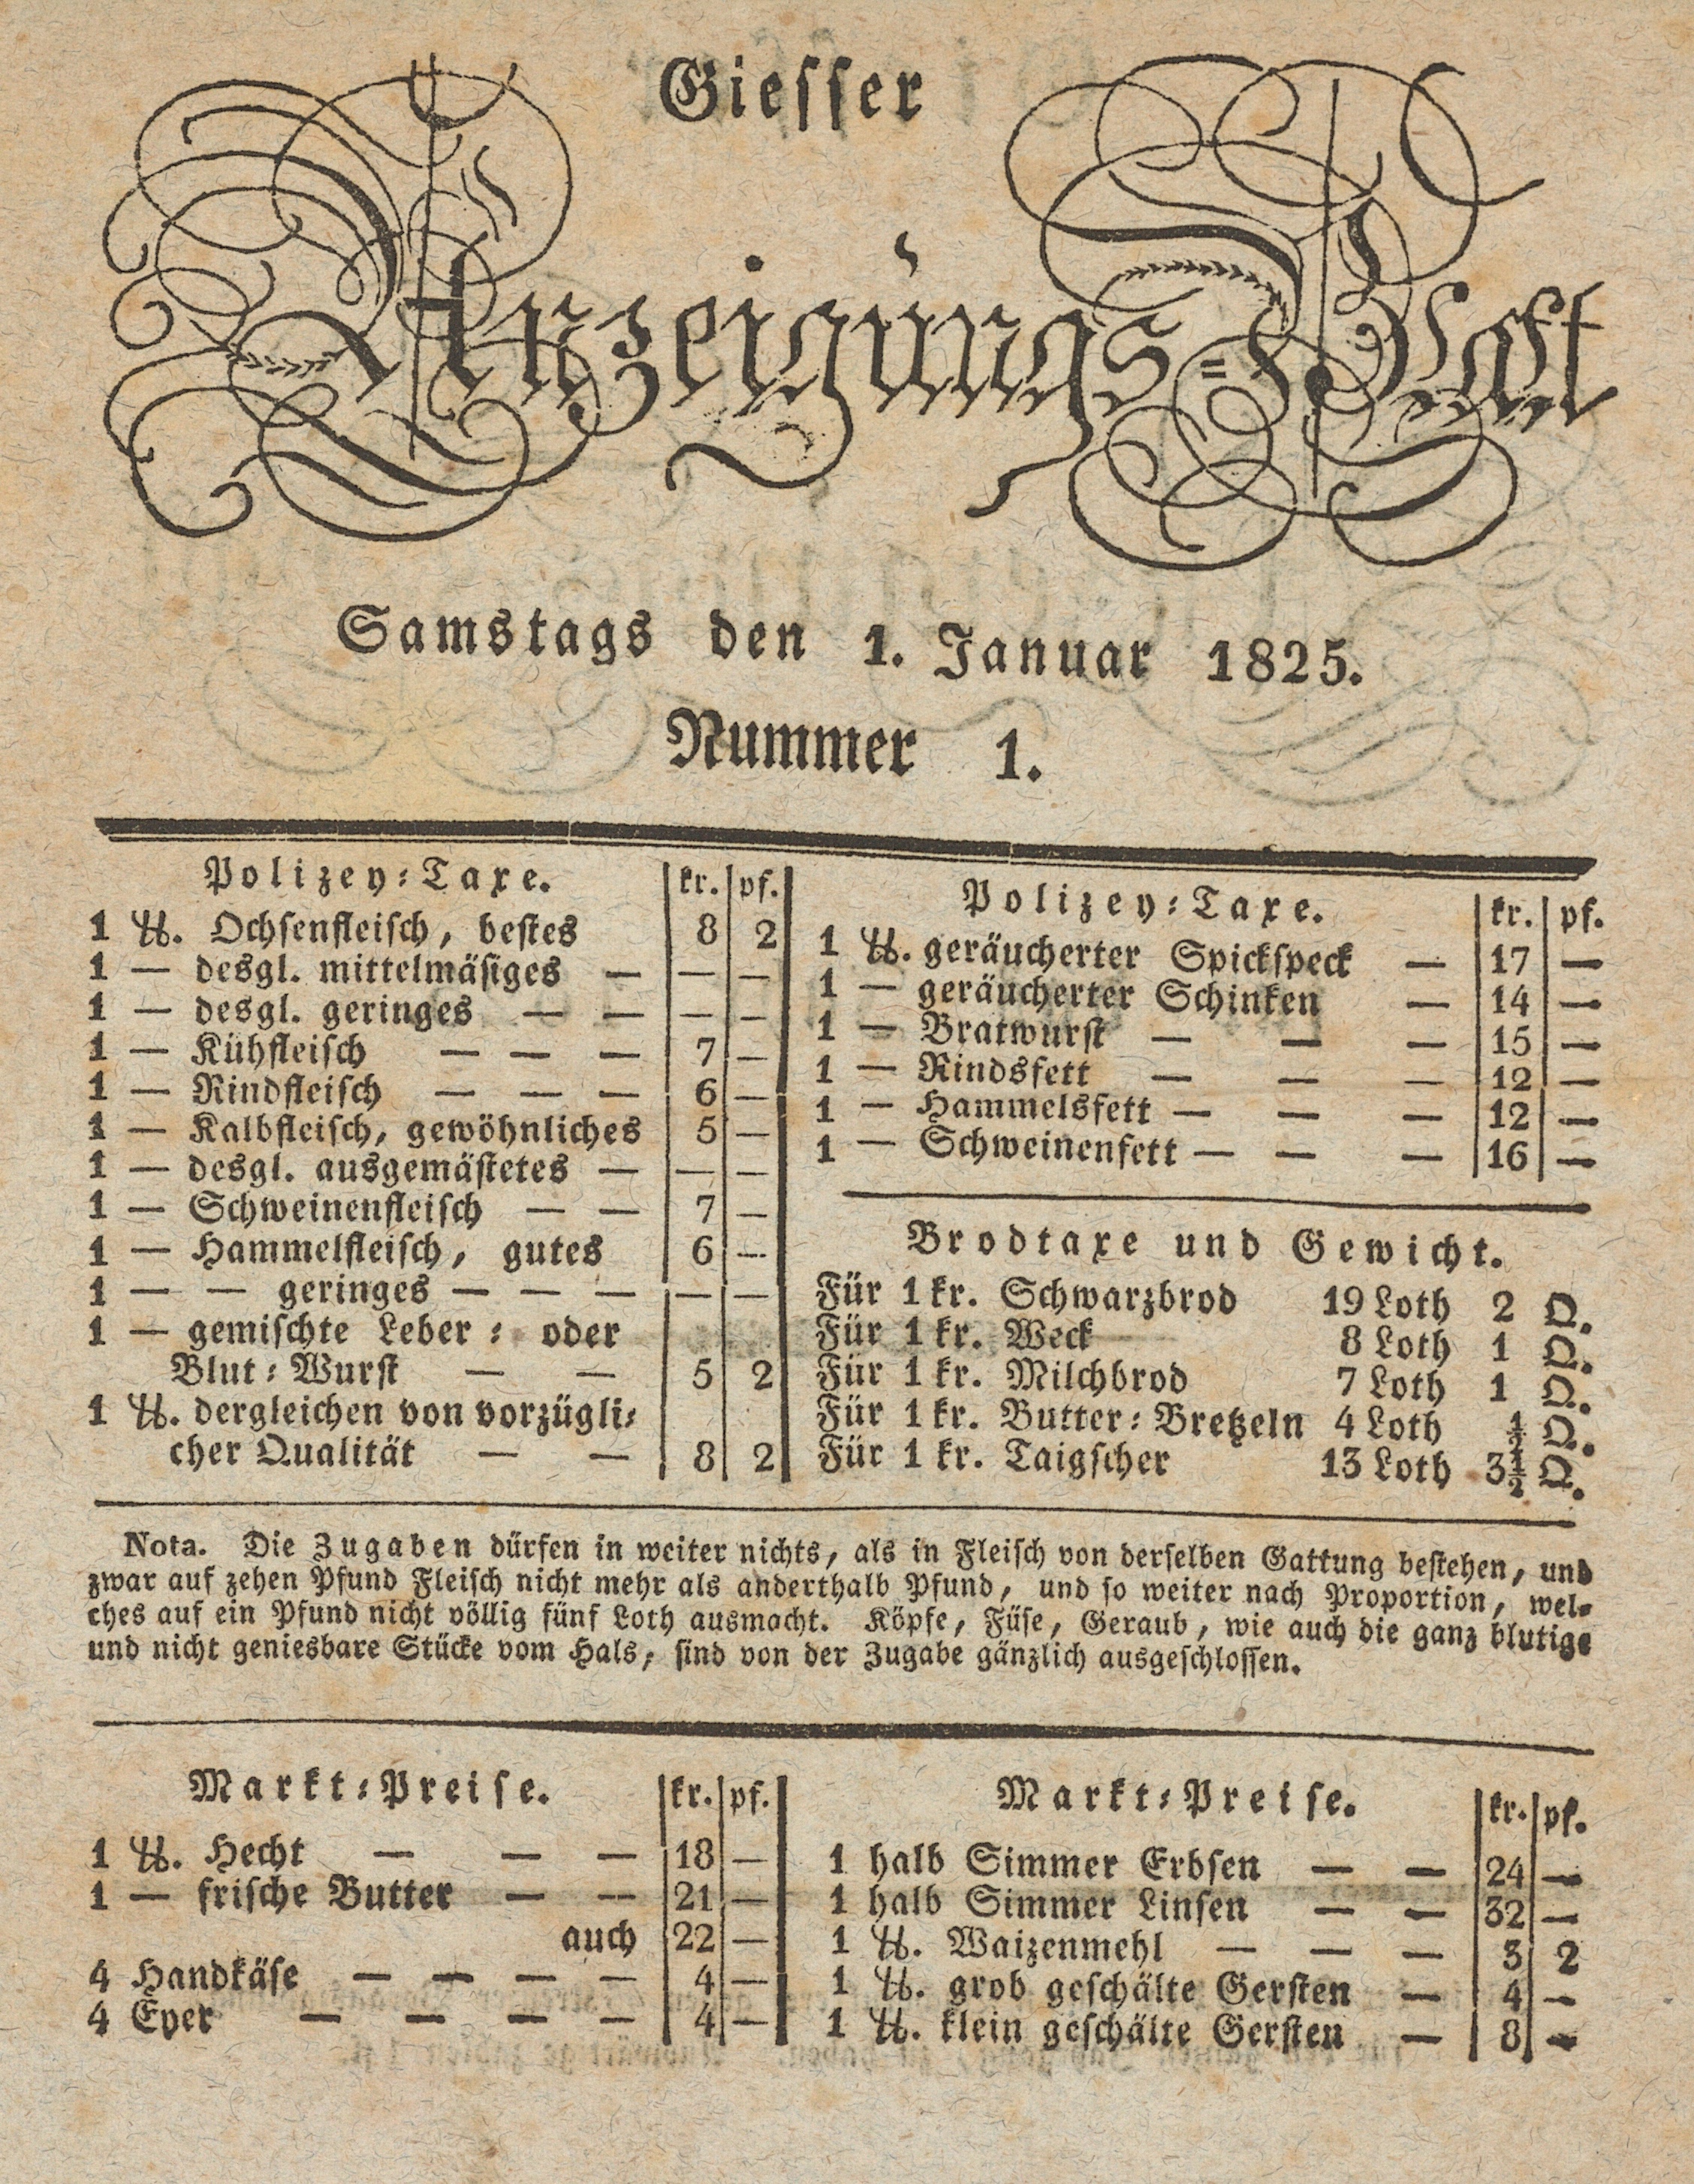 Giesser
Anzeigungs=Blatt
Samstags den 1. Januar 1825.
Nummer 1.
Polizey=Taxe. kr. pf.
1 ℔. Ochsenfleisch, bestes 8 2
1 — desgl. mittelmäsiges — — —
1 — desgl. geringes — — — —
1 — Kühfleisch — — — 7 —
1 — Rindfleisch — — — 6 —
1 — Kalbfleisch, gewöhnliches 5 —
1 — desgl. ausgemästetes — — —
1 — Schweinenfleisch — — 7 —
1 — Hammelfleisch, gutes 6 —
1 — — geringes — — — — —
1 — gemischte Leber= oder
Blut=Wurst — — 5 2
1 ℔. dergleichen von vorzügli=
cher Qualität — — 8 2
Polizey=Taxe. kr. pf.
1 ℔. geräucherter Spickspeck — 17 —
1 — geräucherter Schinken — 14 —
1 — Bratwurst — — — 15 —
1 — Rindsfett — — — 12 —
1 — Hammelsfett — — — 12 —
1 — Schweinenfett — — — 16 —
Brodtaxe und Gewicht.
Für 1 kr. Schwarzbrod 19 Loth 2 Q.
Für 1 kr. Weck 8 Loth 1 Q.
Für 1 kr. Milchbrod 7 Loth 1 Q.
Für 1 kr. Butter=Bretzeln 4 Loth ½ Q.
Für 1 kr. Taigscher 13 Loth 3½ Q.
Nota. Die Zugaben dürfen in weiter nichts, als in Fleisch von derselben Gattung bestehen, und
zwar auf zehen Pfund Fleisch nicht mehr als anderthalb Pfund, und so weiter nach Proportion, wel=
ches auf ein Pfund nicht völlig fünf Loth ausmacht. Köpfe, Füse, Geraub, wie auch die ganz blutige
und nicht geniesbare Stücke vom Hals, sind von der Zugabe gänzlich ausgeschlossen.
Markt=Preise. kr. pf.
1 ℔. Hecht — — — 18 —
1 — frische Butter — — 21 —
auch 22 —
4 Handkäse — — — — 4 —
4 Eyer — — — — 4 —
Markt=Preise. kr. pf.
1 halb Simmer Erbsen — — 24 —
1 halb Simmer Linsen — — 32 —
1 ℔. Waizenmehl — — — 3 2
1 ℔. grob geschälte Gersten — 4 —
1 ℔. klein geschälte Gersten — 8 —